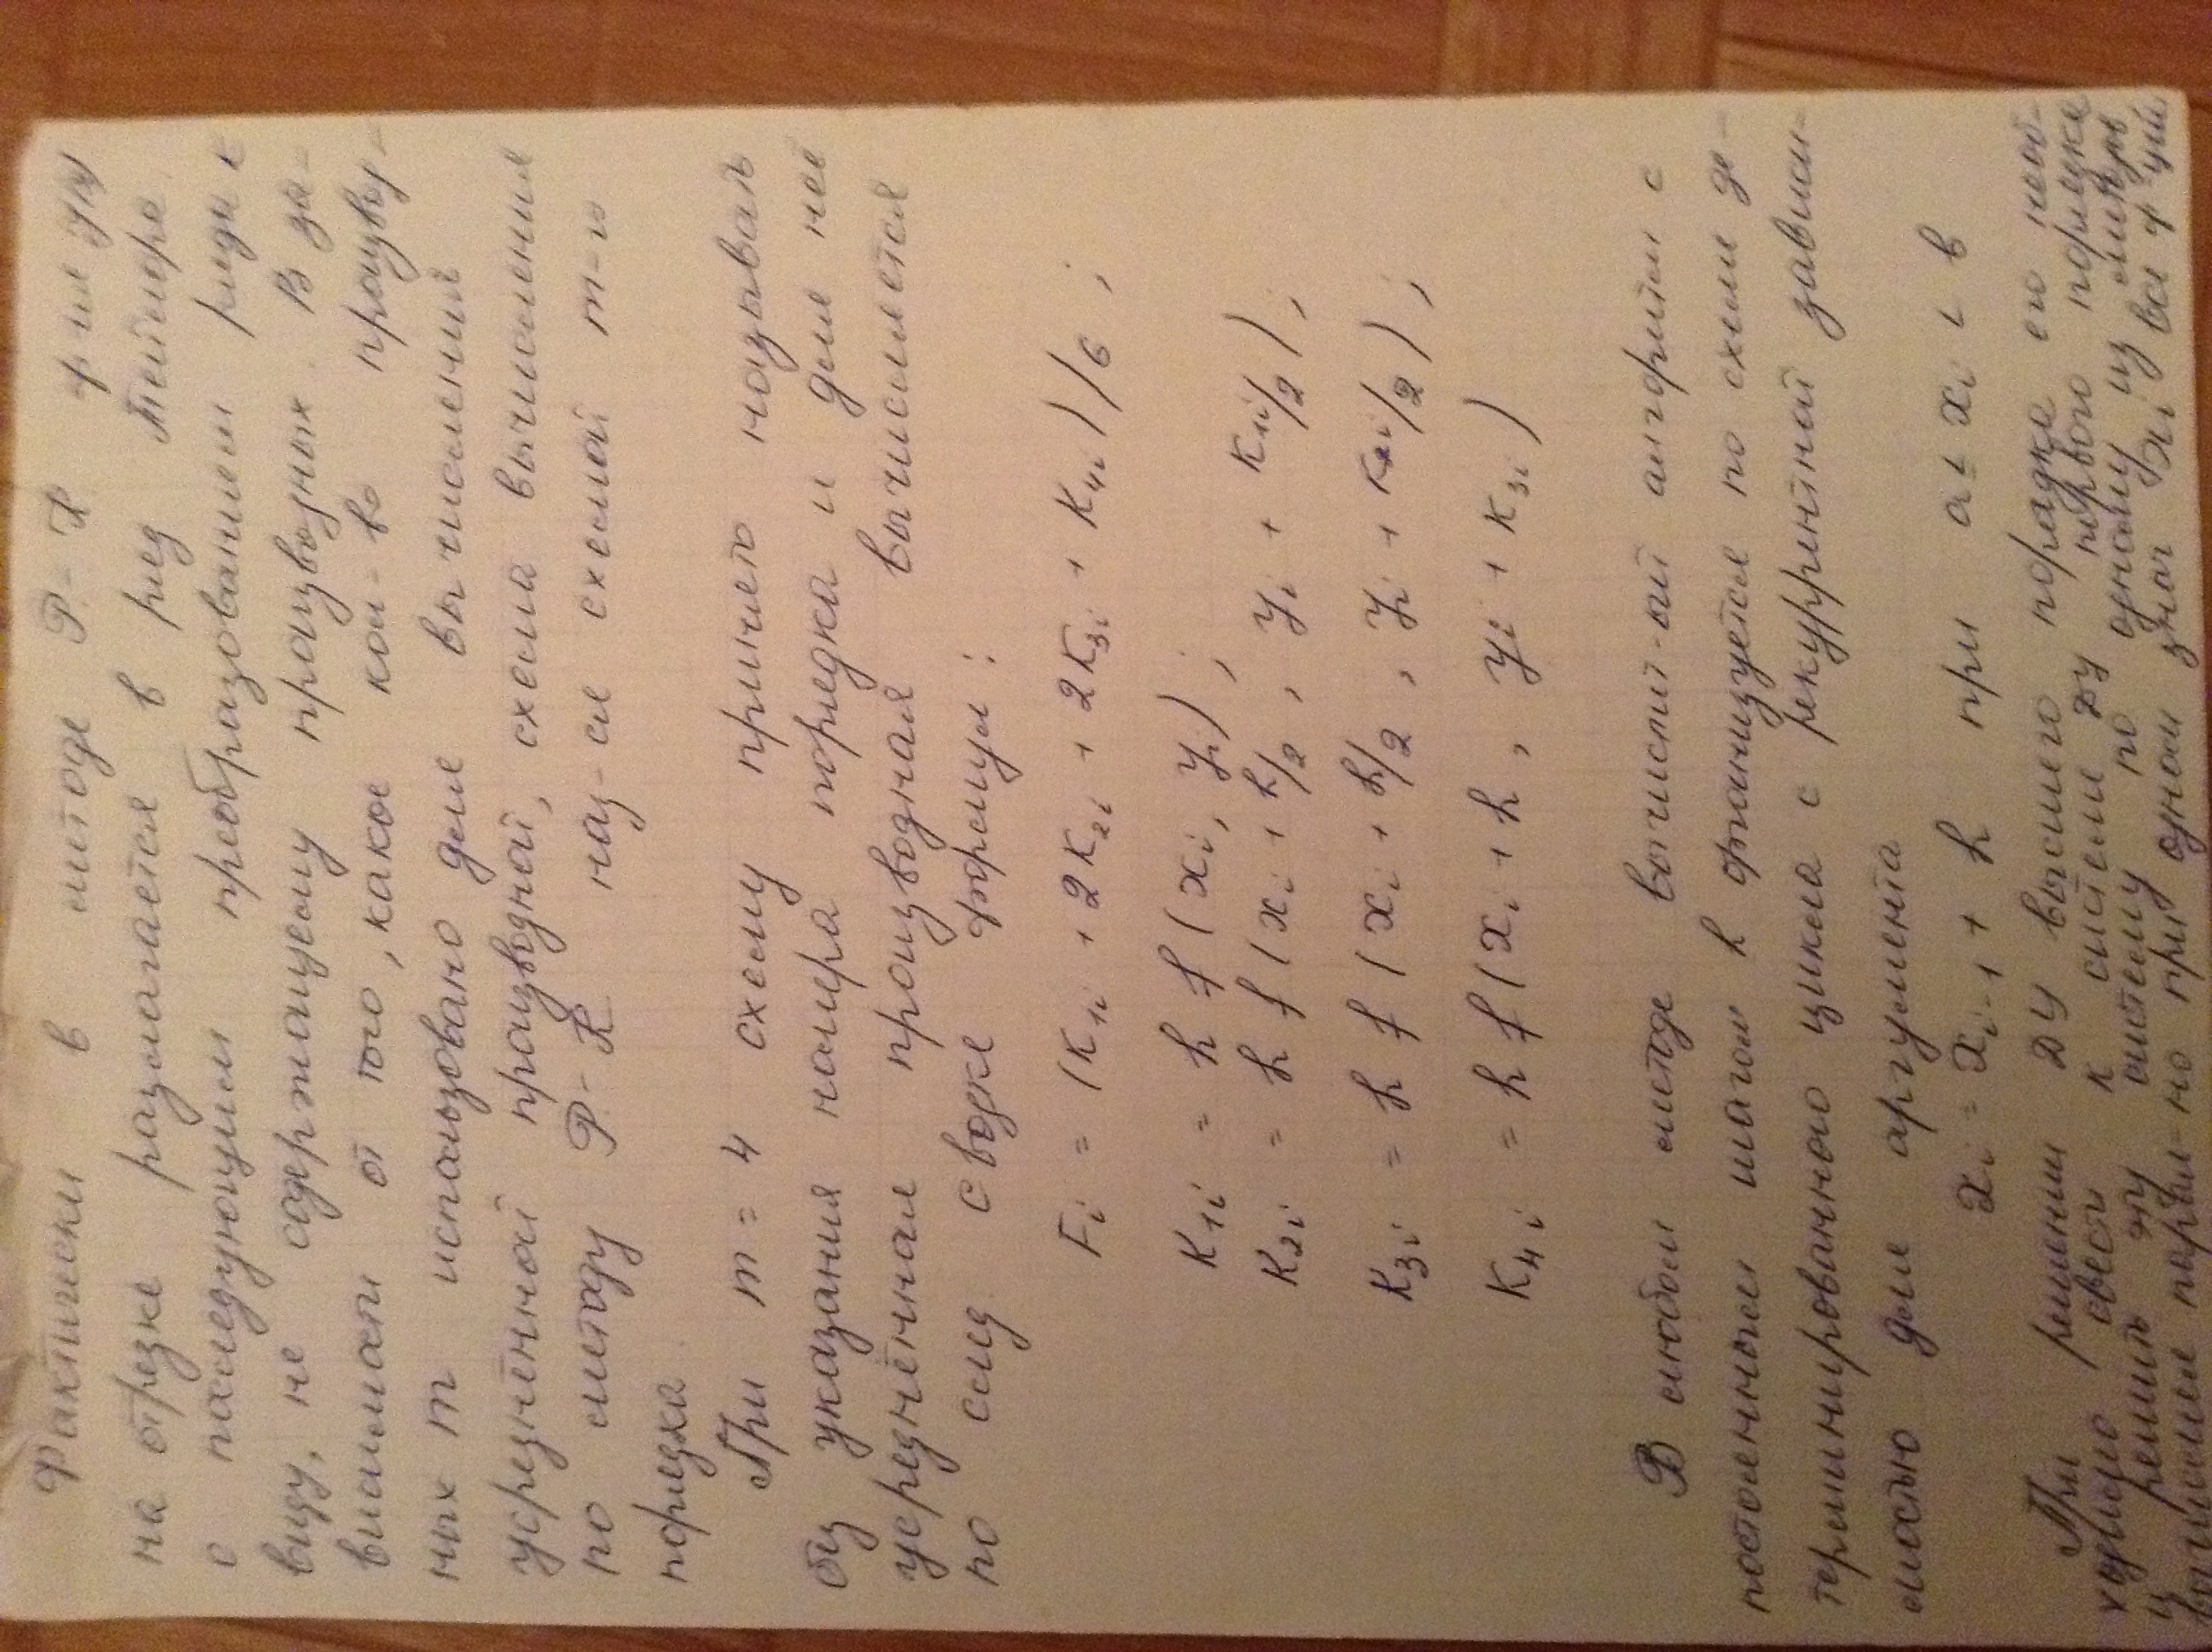 Фактически в методе Р-К ф-ия y(x)
на отрезке разлагается в ряд Тейлора
с последующим преобразованием ряда к
виду, не содержащему производных. В за-
висимости от того, какое кол-во производ-
ных m использовано для вычисления
усреднённой производной, схема вычисления
по методу Р-К наз-ся схемой m-го
порядка.
При m = 4 схему принято называть
без указания номера порядка и для неё
усреднённая производная вычисляется
по след. сводке формул:
Fi = (K1i + 2K2i + 2K3i + K4i)/6 ;
K1i = h f(xi, yi) ;
K2i = h f(xi + h/2 , yi + K1i/2) ;
K3i = h f(xi + h/2 , yi + K2i/2) ;
K4i = h f(xi + h , yi + K3i)
В любом методе вычислит-ый алгоритм с
постоянным шагом h организуется по схеме де-
терминированного цикла с рекуррентной зависи-
мостью для аргумента
xi = xi-1 + h при a ≤ xi < в
При решении ДУ высшего порядка его необ-
ходимо свести к системе ДУ первого порядка
и решить эту систему по одному из методов,
вычисляя парал-но при одном знач xi все ф-ции